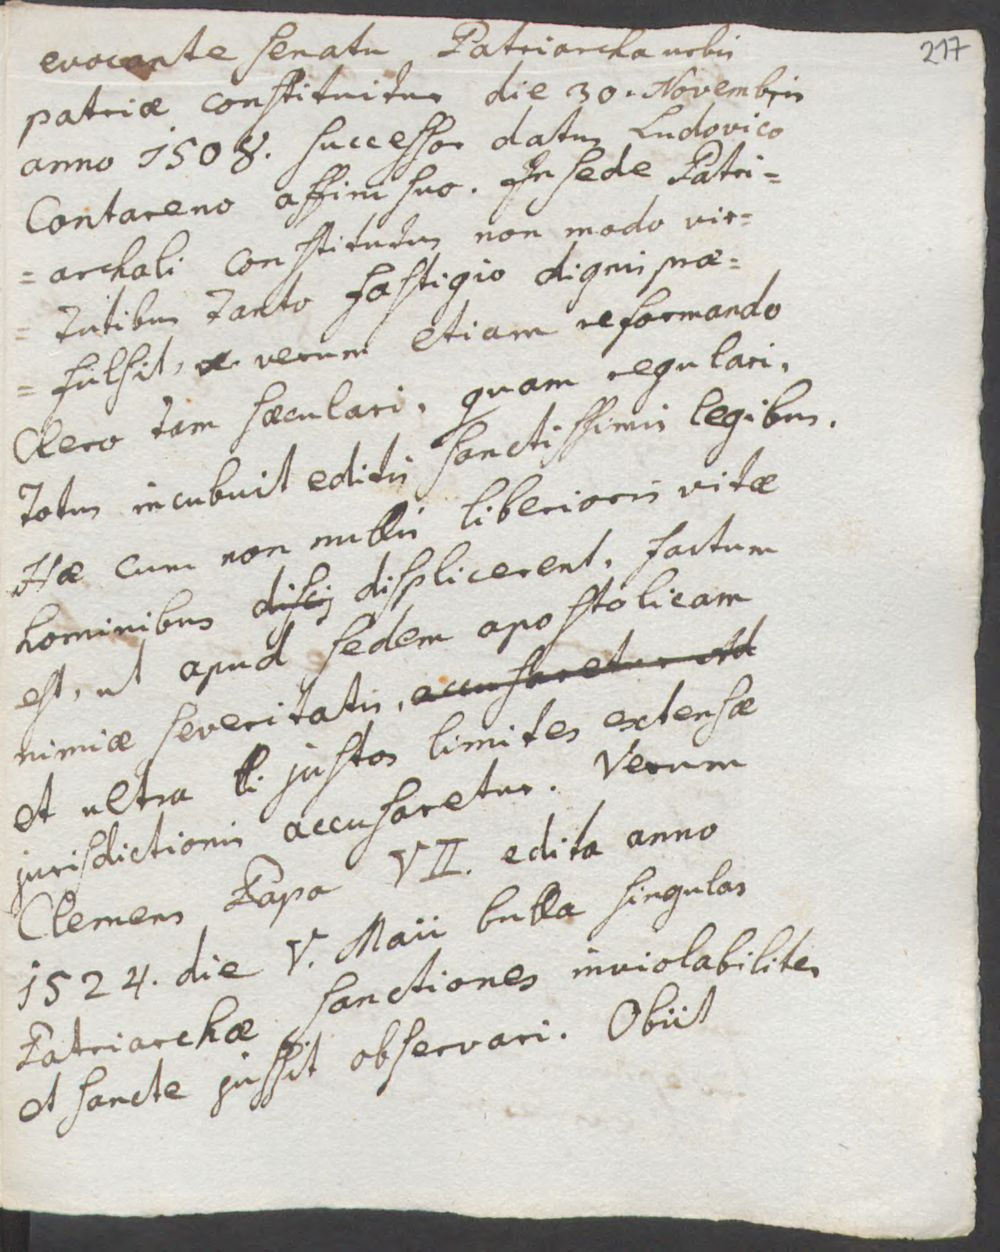 217
evocante senatu Patriarcha urbis
patriæ constituitur die 30. Novembris
anno 1508. successor datus Ludovico
Contareno affini suo. In sede Patri=
=archali constitutus non modo vir=
=tutibus tanto fastigio dignis præ=
=fulsit, verum etiam reformando
Clero tam sæculari, quam regulari,
totus incubuit editis sanctissimis legibus.
Hæ cum non nullis liberioris vitæ
hominibus displicerent, factum
est, ut apud sedem apostolicam
nimiæ severitatis, accusaretur Ad
et ultra justos limites extensæ
jurisdictionis accusaretur. Verum
Clemens Papa VII. edita anno
1524. die V. Maii bulla singulas
Patriarchæ sanctiones inviolabiliter
et sancte jussit observari. Obiit